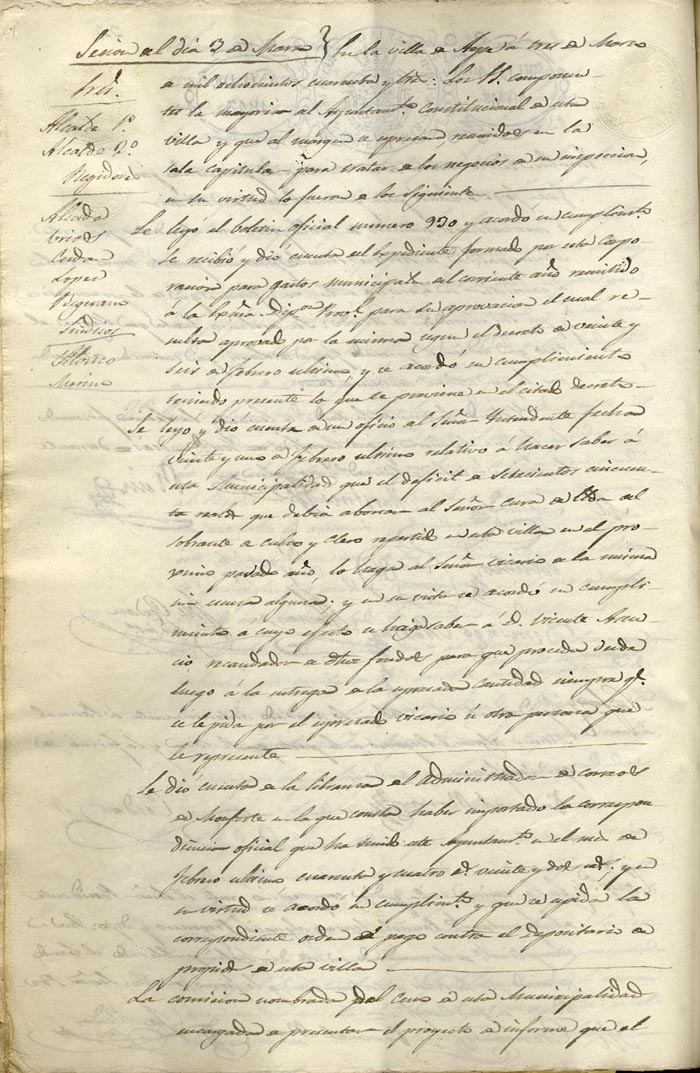 Sesion del dia 3 de Marzo
Pres.
Alcalde 1º.
Alcalde 2º.
Regidores
Síndicos
En la villa de Aspe á tres de Marzo
de mil ochocientos cuarenta y tres: Los SS. componen-
tes la mayoria del Ayuntamto. Constitucional de esta
villa y que al margen se espresan, reunidos en la
sala capitular para tratar de los negocios de su inspeccion,
en su virtud lo fueron de los siguientes
Se leyó el boletin oficial numero 930 y acordó su cumplimto.
Se recibió y dió cuenta del Espediente formado por esta Corpo-
racion para gastos municipales del corriente año remitido
á la Exma. Dipon. Provl. para su aprovacion el cual re-
sulta aprovado por la misma segun el Decreto de veinte y
seis de febrero ultimo, y se acordó su cumplimiento
teniendo presente lo que se previene en el citado decreto
Se leyó y dió cuenta de un oficio del Señor Yntendente fecha
veinte y uno de febrero ultimo relativo á hacer saber á
esta Municipalidad que el deficit de setecientos cincuen-
ta reales que debia abonar al Señor Cura de del
sobrante de culto y clero repartido en esta villa en el pro-
ximo pasado año, lo haga al Señor vicario de la misma
sin escusa alguna; y en su vista se acordó su cumpli-
miento a cuyo efecto se haga saber á D. Vicente Asen-
cio, recaudador de dhos fondos para que proceda desde
luego á la entrega de la espresada cantidad siempre qe.
se le pida por el espresado vicario ú otra persona que
le represente
Se dió cuenta de la libranza del Administrador de correos
de Monforte en la que consta haber importado la correspon-
dencia oficial que ha tenido este Ayuntamto. en el mes de
febrero ultimo cuarenta y cuatro rs. veinte y dos ms. y en
su virtud se acordó su cumplimto. y que se espida la
correspondiente orden de pago contra el depositario de
propios de esta villa
La comision nombrada del seno de esta Municipalidad
encargada de presentar el proyecto de informe que el